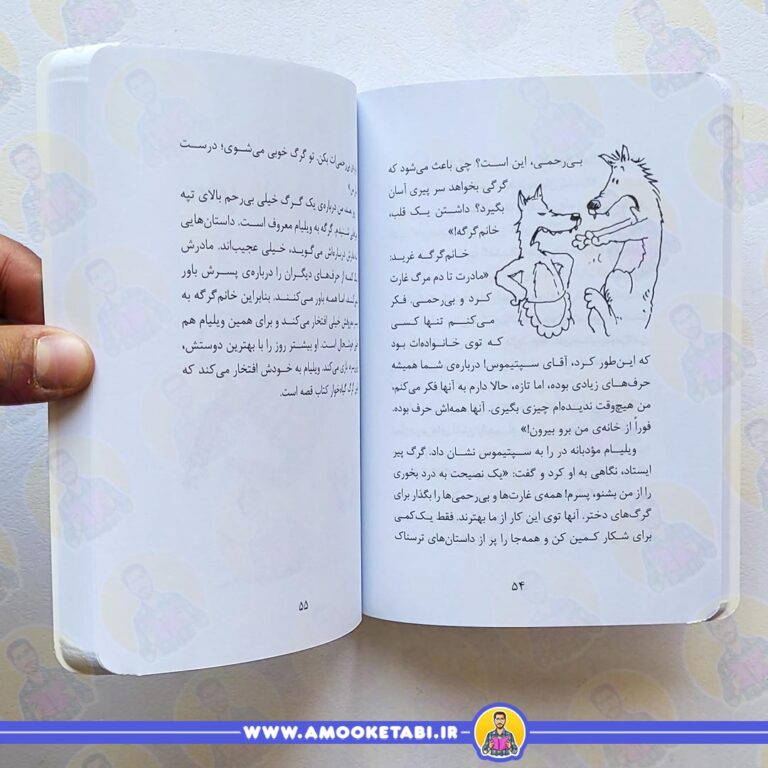 بی‌رحمی، این است؟ چی باعث می‌شود که
گرگی بخواهد سر پیری آسان
بگیرد؟ داشتن یک قلب،
خانم‌گرگه!»
خانم‌گرگه غرید:
«مادرت تا دم مرگ غارت
کرد و بی‌رحمی. فکر
می‌کنم تنها کسی
که توی خانواده‌ات بود
که این‌طور کرد، آقای سپتیموس! درباره‌ی شما همیشه
حرف‌های زیادی بوده، اما تازه، حالا دارم به آنها فکر می‌کنم،
من هیچ‌وقت ندیده‌ام چیزی بگیری. آنها همه‌اش حرف بوده.
فوراً از خانه‌ی من برو بیرون!»
ویلیام مؤدبانه در را به سپتیموس نشان داد. گرگ پیر
ایستاد، نگاهی به او کرد و گفت: «یک نصیحت به درد بخوری
را از من بشنو، پسرم! همه‌ی غارت‌ها و بی‌رحمی‌ها را بگذار برای
گرگ‌های دختر. آنها توی این کار از ما بهترند. فقط یک‌کمی
برای شکار کمین کن و همه‌جا را پر از داستان‌های ترسناک
۵۴
بی‌رحمی‌ات بکن. تو گرگ خوبی می‌شوی؛ درست
من درباره‌ی یک گرگ خیلی بی‌رحم بالای تپه
گرگه به ویلیام معروف است. داستان‌هایی
درباره‌اش می‌گوید، خیلی عجیب‌اند. مادرش
از حرف‌های دیگران را درباره‌ی پسرش باور
اما همه باور می‌کنند. بنابراین خانم‌گرگه به
خیلی افتخار می‌کند و برای همین ویلیام هم
او بیشتر روز را با بهترین دوستش،
بازی می‌کند. ویلیام به خودش افتخار می‌کند که
گرگ گیاه‌خوار کتاب قصه است.
۵۵
WWW.AMOOKETABI.IR